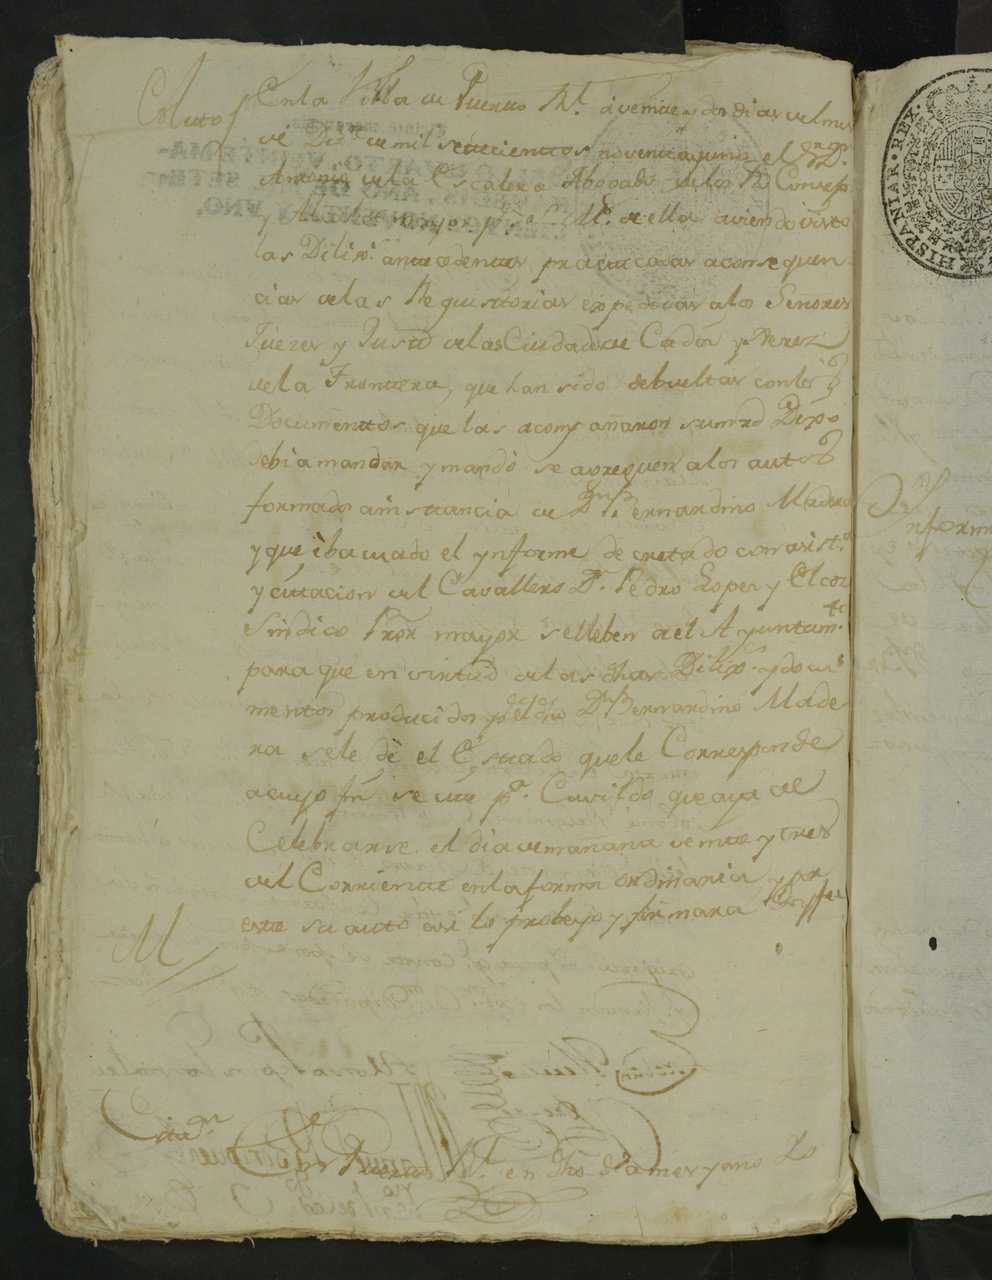 Auto
En la Villa de Puerto Rl. a veinte y dos dias del mes
de Dizre. de mil setecientos noventa y uno el Sr. Dn.
Antonio de la Escalera Abogado de los Rs. Consejos
y Alcalde mayor pr. S. M. de ella aviendo visto
las Dilixs. antecedentes practicadas a consequen
cias de las Requisitorias expedidas a los Señores
Juezes y Justas. de las Ciudades de Cadiz y Xerez
de la Frontera, que han sido debueltas con los
Documentos que las acompañaron su mrd Dixo
debia mandar y mandó se agreguen a los autos
formados a instancia de Dn. Bernardino Madera
y que evacuado el ynforme decretado con asista.
y citacion del Cavallero Dn. Pedro Lopez y
Sindico Pror. mayor se lleben a el Ayuntamto.
para que en virtud de las dhas Dilixs. y docu
mentos producidos por el dho Dn. Bernardino Made
ra se le dé el Estado que le Corresponde
a cuyo fin se cite pa. Cavildo que aya de
Celebrarse el dia de mañana veinte y tres
del Corriente en la forma ordinaria y por
este su auto asi lo probeyo y firmará
Citon.
En Puerto Rl. en dho dia mes y año Yo
HISPANIAR. REX.
Informe